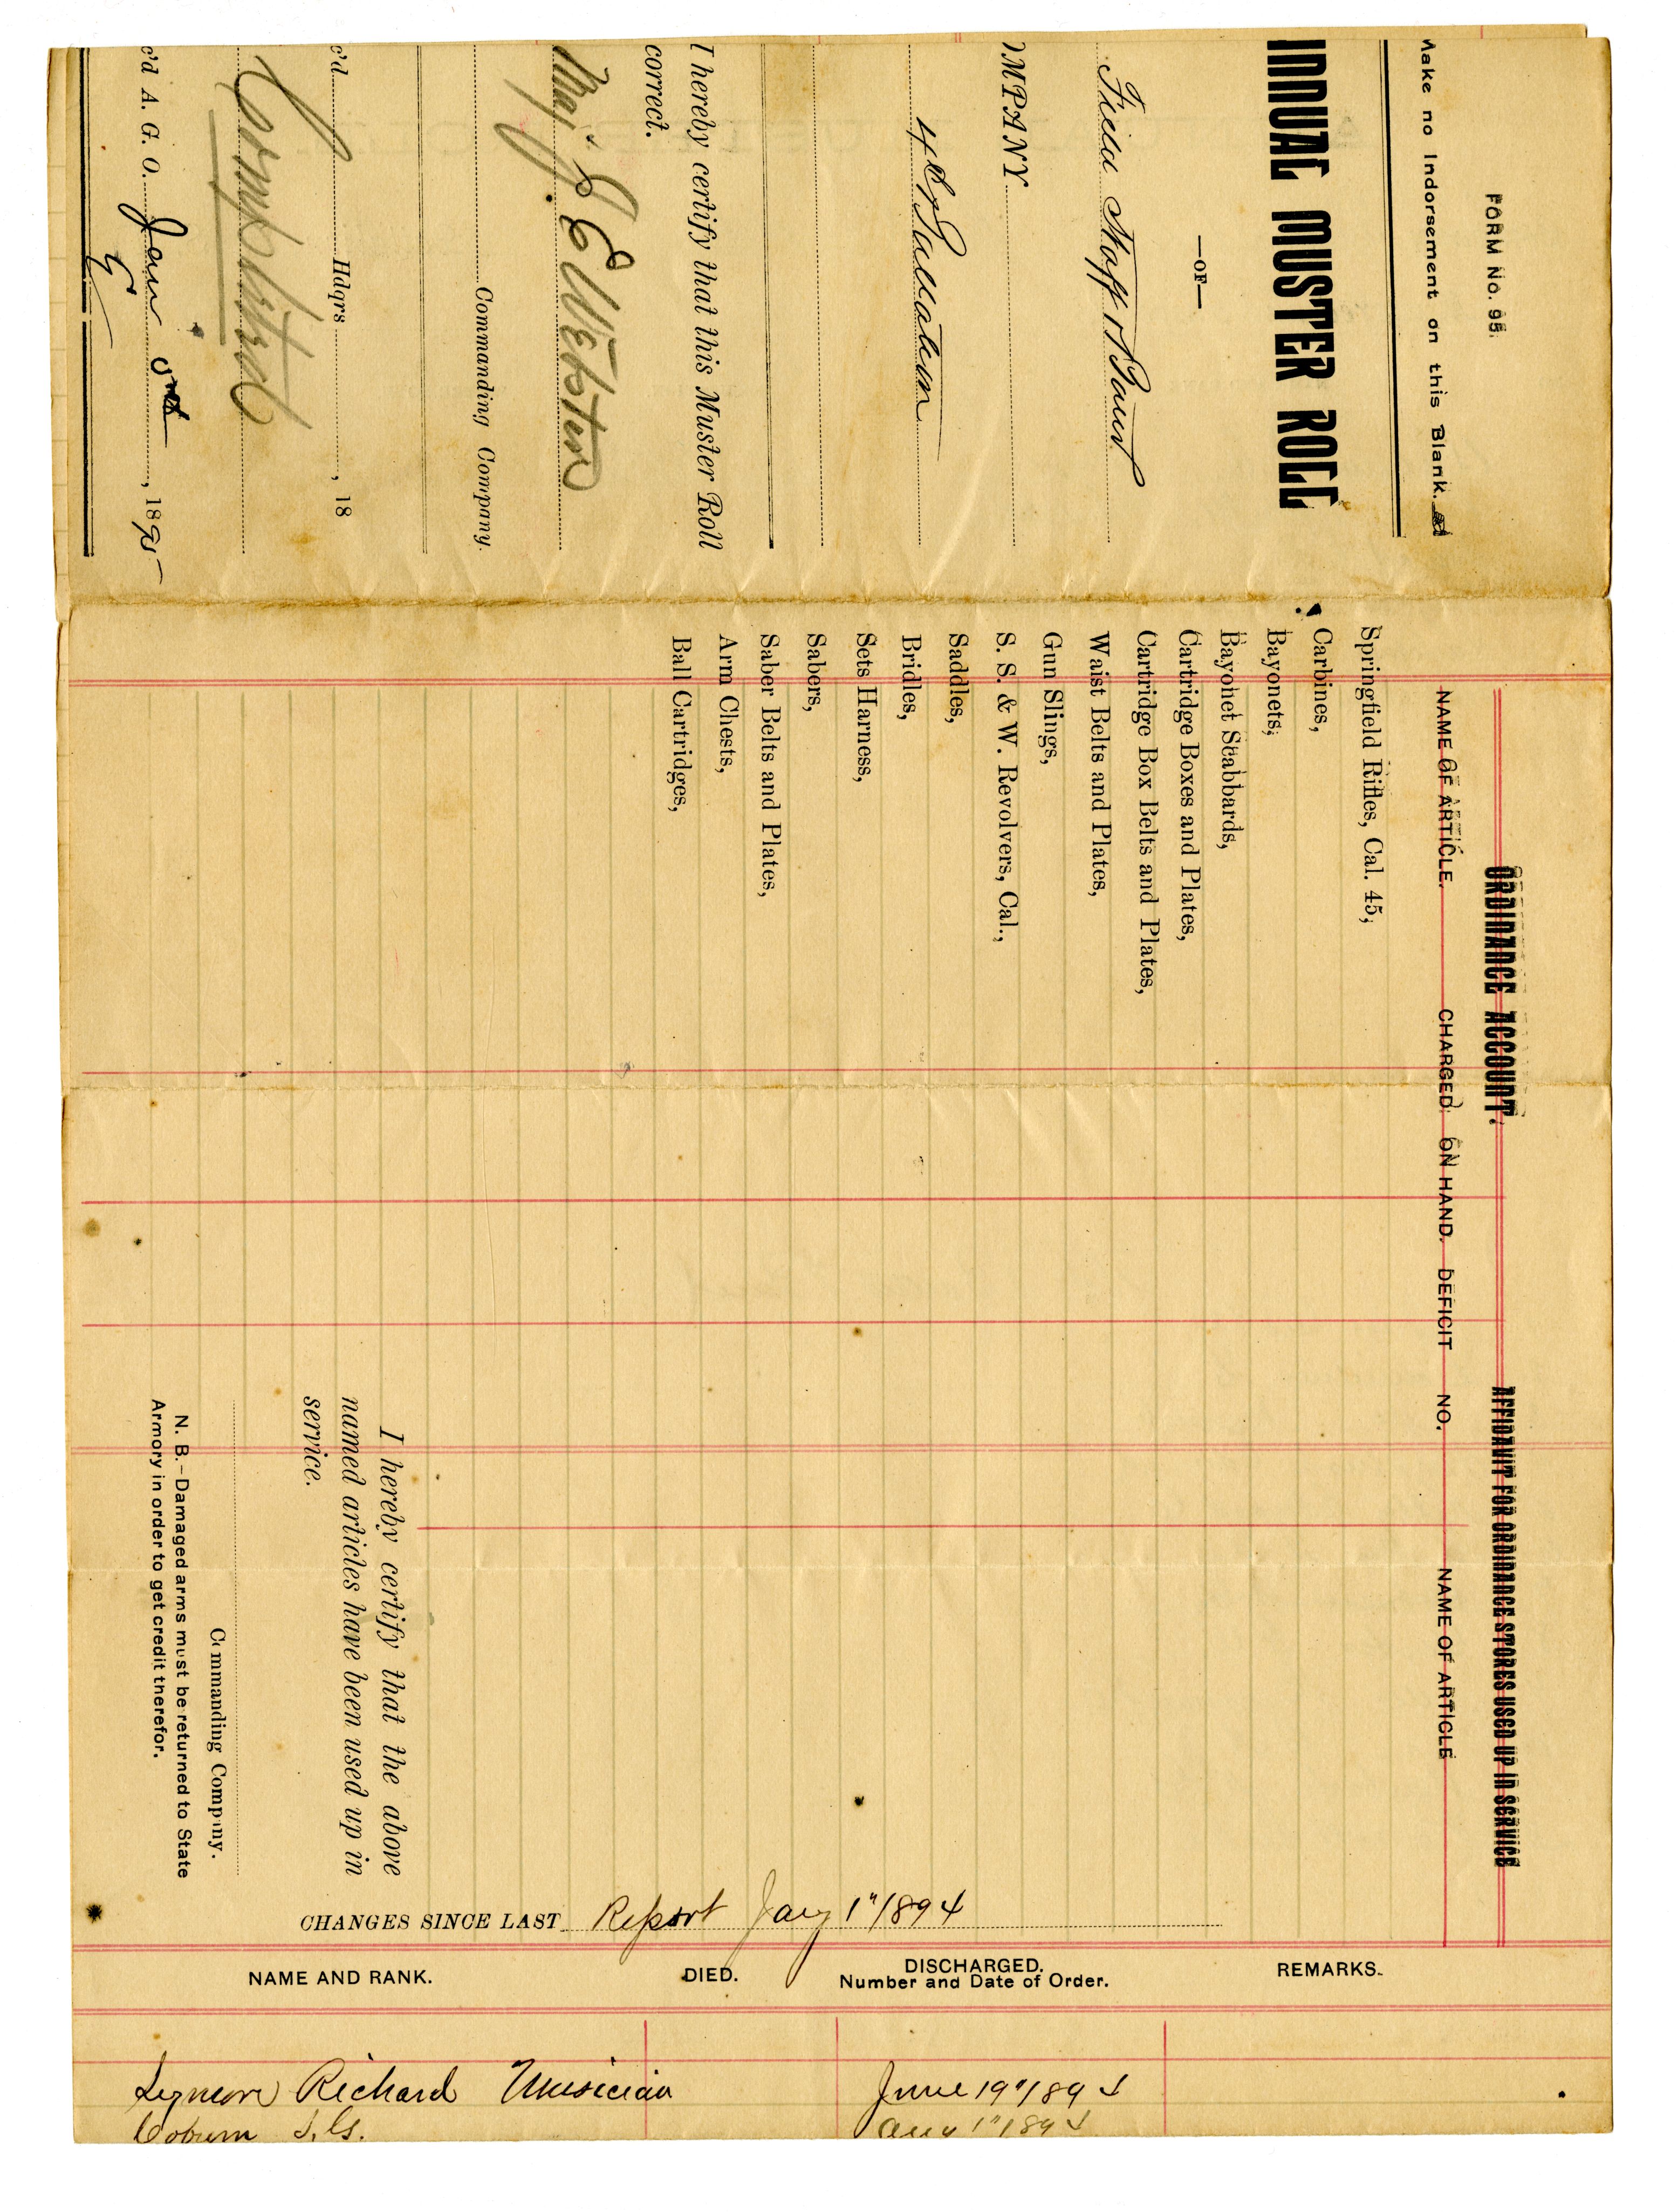 FORM No. 95.
Make no Indorsement on this Blank.
NNUAL MUSTER ROLL
—OF—
Field Staff & Band
OMPANY
4th Battalion
I hereby certify that this Muster Roll
correct.
Maj. J. E. Webster
Commanding Company.
c'd Hdqrs , 18
c'd A. G. O. Jan , 1895
ORDINANCE ACCOUNT.
NAME OF ARTICLE. CHARGED. ON HAND. DEFICIT
Springfield Rifles, Cal. 45,
Carbines,
Bayonets,
Bayonet Scabbards,
Cartridge Boxes and Plates,
Cartridge Box Belts and Plates,
Waist Belts and Plates,
Gun Slings,
S. S. & W. Revolvers, Cal.,
Saddles,
Bridles,
Sets Harness,
Sabers,
Saber Belts and Plates,
Arm Chests,
Ball Cartridges,
AFFIDAVIT FOR ORDINANCE STORES USED UP IN SERVICE
NO. NAME OF ARTICLE
I hereby certify that the above
named articles have been used up in
service.
Commanding Company.
N. B.—Damaged arms must be returned to State
Armory in order to get credit therefor.
CHANGES SINCE LAST Report Jany 1" 1894
NAME AND RANK. DIED. DISCHARGED. REMARKS.
Number and Date of Order.
Richard Musician June 19" 1894
Coburn 1" 1894